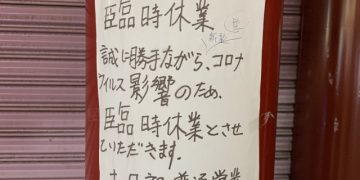 臨時休業
誠に勝手ながら、コロナ
ウイルス影響のため、
臨時休業とさせ
ていただきます。